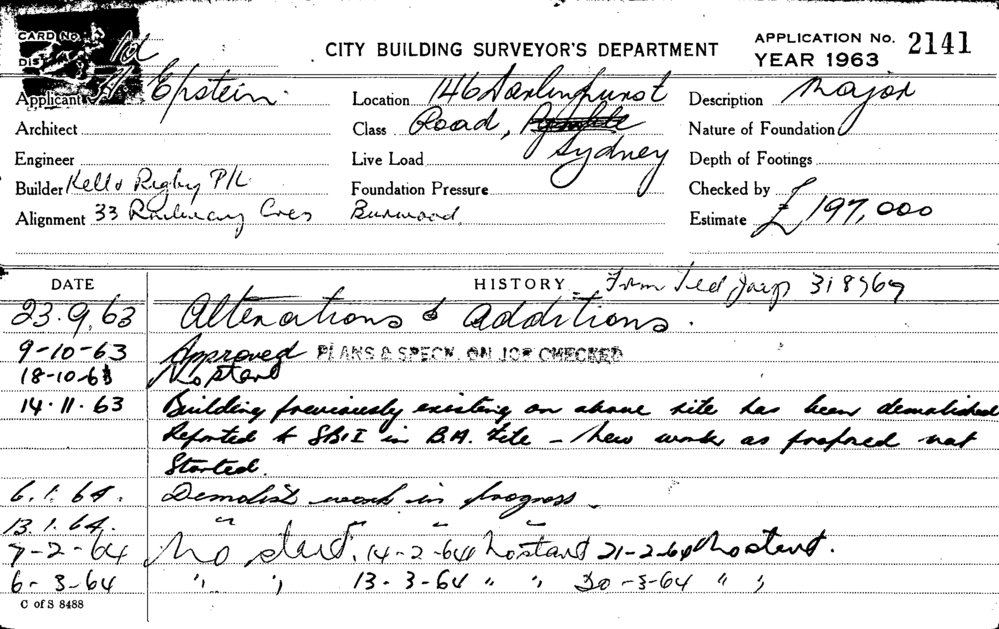 CARD No.
CITY BUILDING SURVEYOR'S DEPARTMENT
APPLICATION No. 2141
YEAR 1963
Applicant H Epstein.
Location 146 Darlinghurst
Description Major
Architect
Class Road,
Nature of Foundation
Engineer
Live Load Sydney
Depth of Footings
Builder Kell & Rigby P/L
Foundation Pressure
Checked by
Alignment 33 Railway Cres Burwood
Estimate £197,000
DATE HISTORY From Ted 318969
23.9.63 Alterations & additions.
9-10-63 Approved PLANS & SPECN. ON JOB CHECKED
18-10-63 No start
14.11.63 Building previously existing on above site has been demolished
Reported to SBI in B.A. file - New work as proposed not
Started.
6.1.64. Demolist work in progress.
13.1.64. " " "
7-2-64 No start. 14-2-64 No start 21-2-64 No start.
6-3-64 " " 13-3-64 " " 30-3-64 " "
C of S 8488